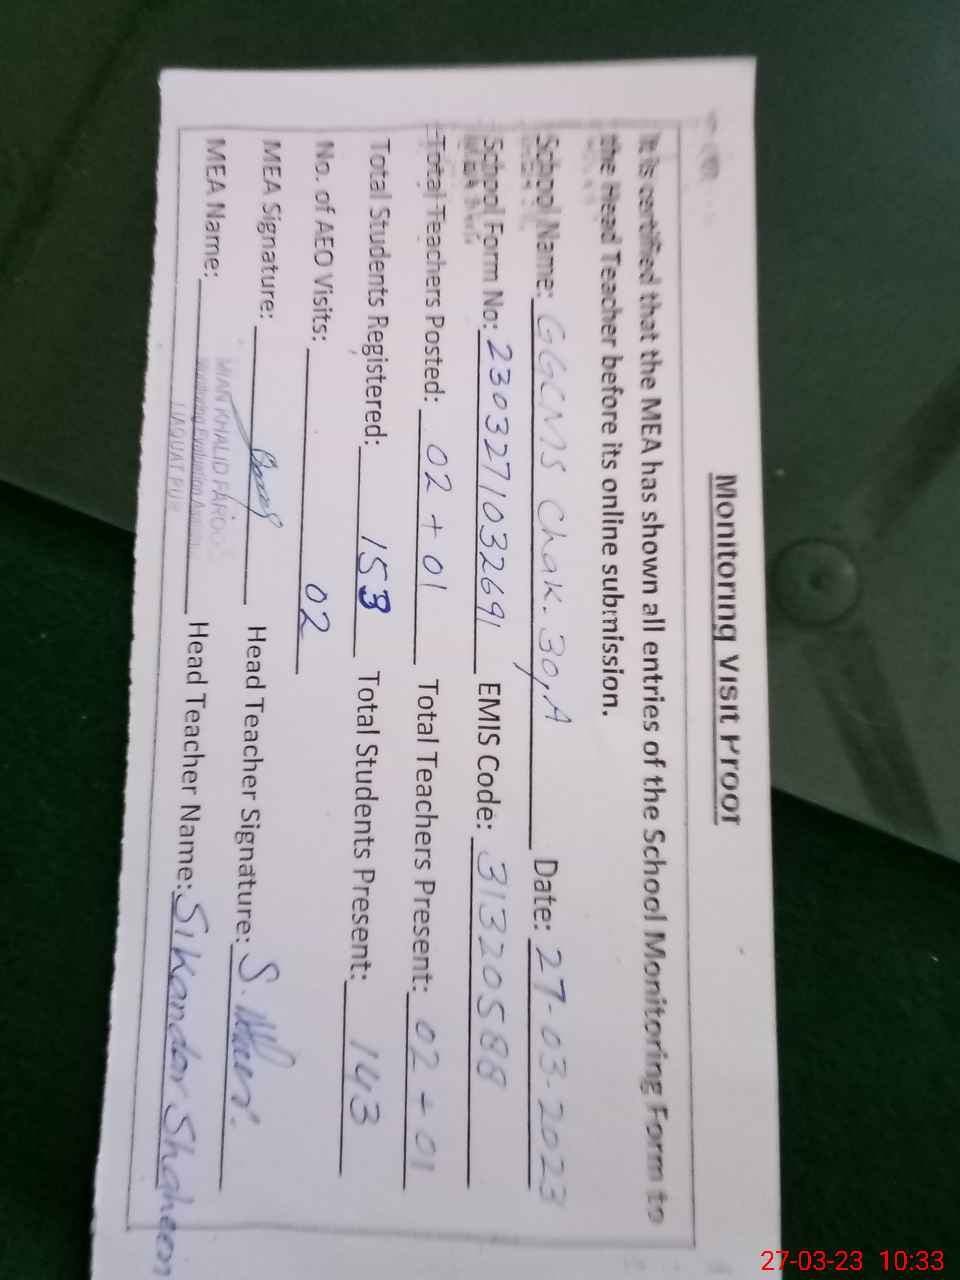 Monitoring Visit Proof
It is certified that the MEA has shown all entries of the School Monitoring Form to
the Head Teacher before its online submission.
School Name: GGCMS Chak. 30/A Date: 27-03-2023
School Form No: 2303271032691 EMIS Code: 31320588
Total Teachers Posted: 02 + 01 Total Teachers Present: 02 + 01
Total Students Registered: 153 Total Students Present: 143
No. of AEO Visits: 02
MEA Signature: Head Teacher Signature:
MIAN KHALID FAROOQ
MEA Name: Monitoring Evaluation Head Teacher Name: Sikandar Shaheen
LIAQUAT PUR
27-03-23 10:33